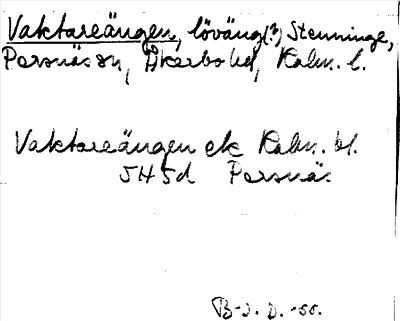 Vaktareängen, löväng(?) Stenninge,
Persnäs sn, Åkerbo hd, Kalm. l.
Vaktareängen ek Kalm. bl.
5H5d Persnäs
B-J. D. -55.